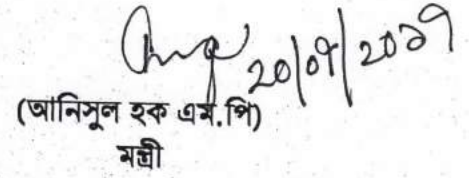 20/07/2017
(আনিসুল হক এম.পি)
মন্ত্রী